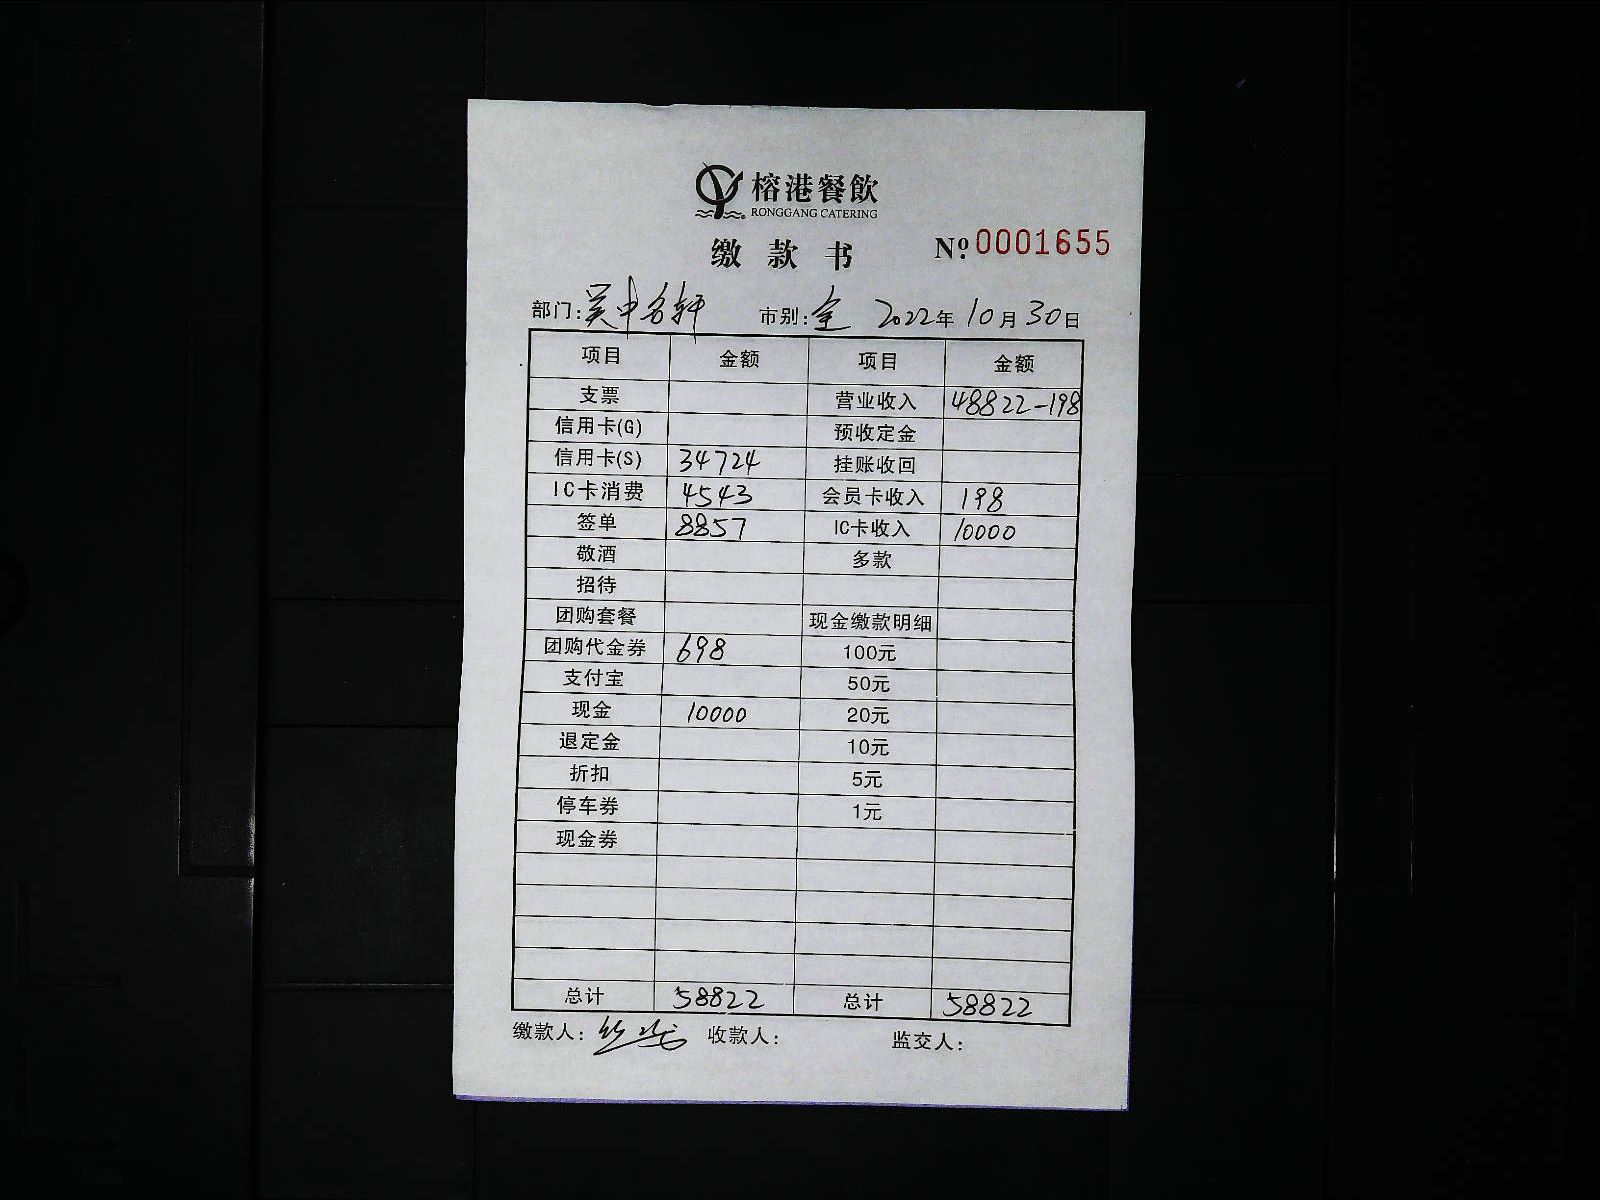 榕港餐飲
RONGGANG CATERING
缴款书 №0001655
部门:吴中名轩 市别:全 2022年10月30日
项目 金额 项目 金额
支票 营业收入 48822-198
信用卡(G) 预收定金
信用卡(S) 34724 挂账收回
IC卡消费 4543 会员卡收入 198
签单 8857 IC卡收入 10000
敬酒 多款
招待
团购套餐 现金缴款明细
团购代金券 698 100元
支付宝 50元
现金 10000 20元
退定金 10元
折扣 5元
停车券 1元
现金券
总计 58822 总计 58822
缴款人: 收款人: 监交人: